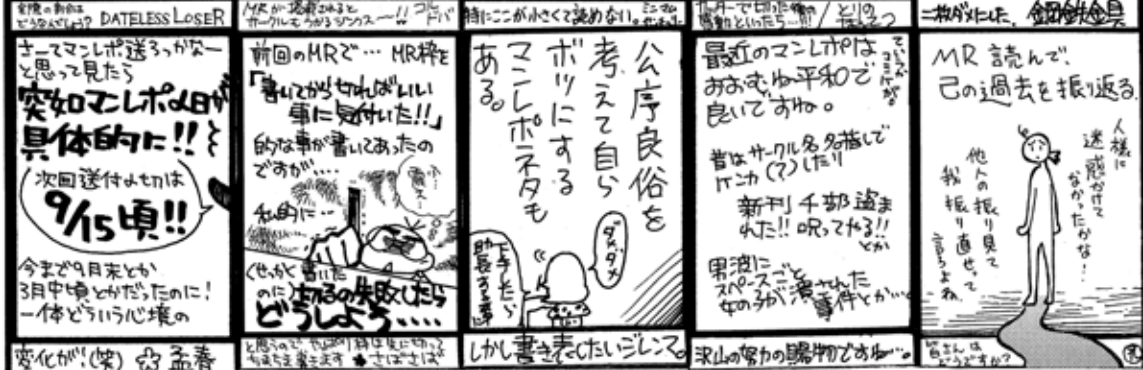 実際の新刊は
どうなんでしょう?
DATELESS LOSER
さーてマンレポ送ろっかなー
と思って見たら
突如マンレポ〆日が
具体的に!!
次回送付〆切は
9/15頃!!
今まで9月末とか
3月中頃とかだったのに!
一体どういう心境の
変化が!(笑)
☆孟春
MRが掲載されると
サークルもうかるジンクス〜!!
前回のMRで… MR枠を
「書いてから切ればいい
事に気付いた!!」
的な事が書いてあったの
ですが…
私的に…
(せっかく書いた
のに)切るの失敗したら
どうしよう・・・・
と思うので やっぱり枠は先に切って
特にここが小さくて読めない。
公序良俗を
考えて自ら
ボツにする
マンレポネタも
ある。
ダメダメ
しかし書き表したいジレンマ。
最近のマンレポは
おおむね平和で
良いですね。
昔はサークル名名指しで
ケンカ(?)したり
新刊千部盗ま
れた!!呪ってやる!!
とか
男波に
スペースごと
女の子が潰された
事件とか…。
沢山の努力の賜物ですね…。
二枚ダメにした。
MR読んで、
己の過去を振り返る
人様に
迷惑かけて
なかったかな!
他人の振り見て
我が振り直せって
言うよね
皆さんは
どうですか?